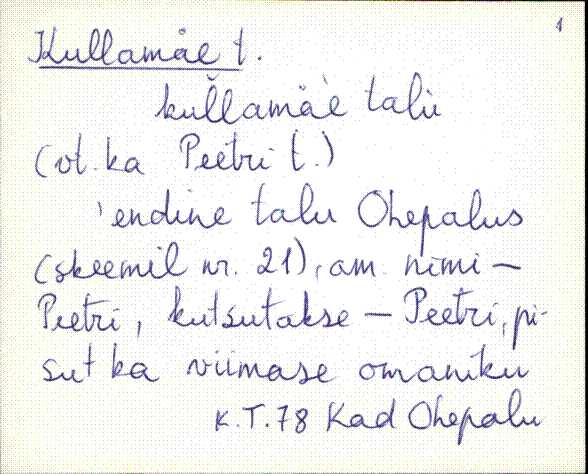 1
Kullamäe t.
kul̆lamäè talù
(vt. ka Peetri t.)
'endine talu Ohepalus
(skeemil nr. 21), am. nimi -
Peetri, kutsutakse - Peetri, pi-
sut ka viimase omaniku
K.T.78 Kad Ohepalu